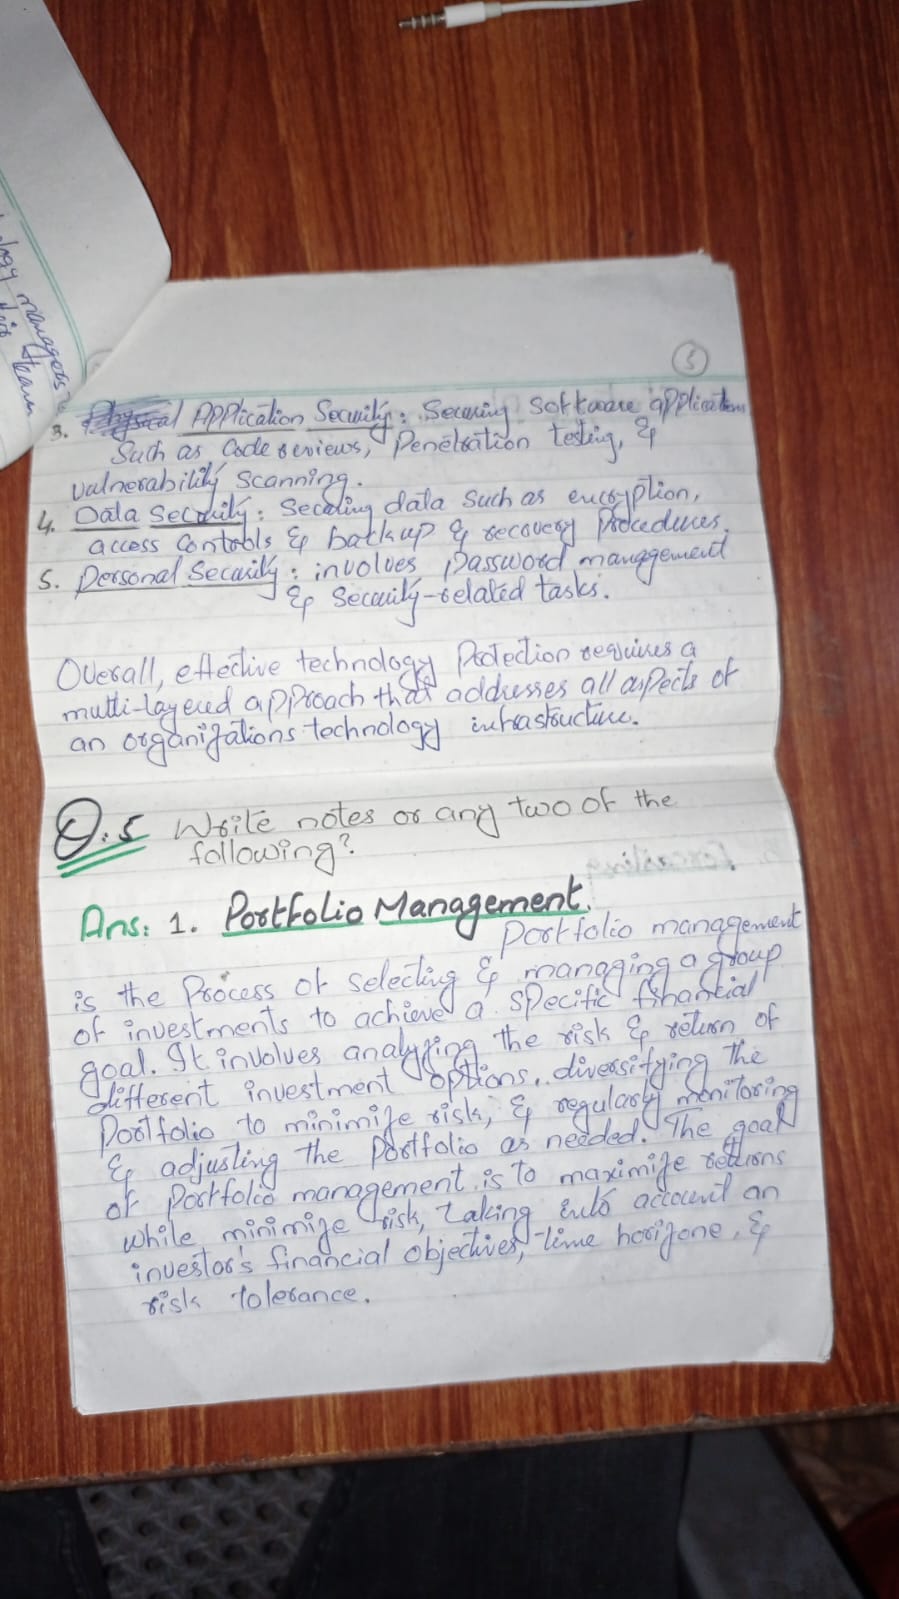 5
3. Application Security: Securing Software applications
Such as Code reviews, Penetration testing, &
vulnerability scanning.
4. Data Security: Secuing data such as encryption,
access controls & backup & recovery procedures.
5. Personal Security: involves password management
& Security-related tasks.
Overall, effective technology Protection requires a
multi-layered approach that addresses all aspects of
an organizations technology infrastructure.
Q.5 Write notes or any two of the
following?
Ans: 1. Portfolio Management.
Portfolio management
is the Process of selecting & managing a group
of investments to achieve a specific financial
goal. It involves analyzing the risk & return of
different investment options, diversifying the
Portfolio to minimize risk, & regularly monitoring
& adjusting the Portfolio as needed. The goal
of Portfolio management is to maximize returns
while minimize risk, taking into account an
investor's financial objectives, time horizone, &
risk tolerance.